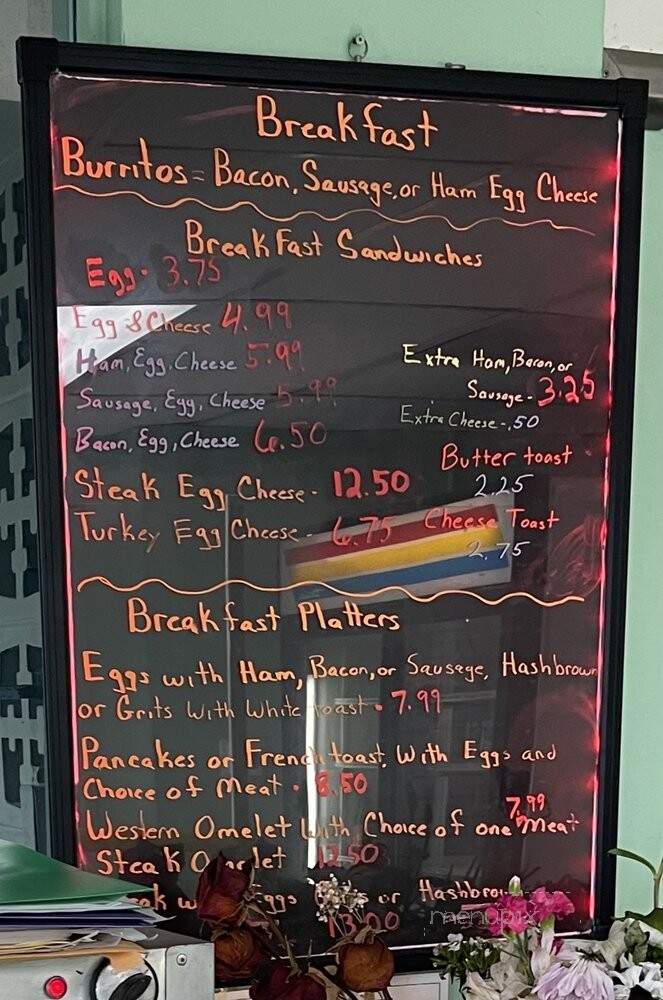 Breakfast
Burritos = Bacon, Sausage, or Ham Egg Cheese
Breakfast Sandwiches
Egg - 3.75
Egg & Cheese 4.99
Ham, Egg, Cheese 5.99
Sausage, Egg, Cheese 5.99
Bacon, Egg, Cheese 6.50
Steak Egg Cheese - 12.50
Turkey Egg Cheese - 6.75
Extra Ham, Bacon, or
Sausage - 3.25
Extra Cheese - .50
Butter toast
2.25
Cheese Toast
2.75
Breakfast Platters
Eggs with Ham, Bacon, or Sausage, Hashbrown
or Grits with White toast • 7.99
Pancakes or French toast, With Eggs and
Choice of Meat • 8.50
Western Omelet with Choice of one Meat 7.99
Steak Omelet 12.50
Eggs or Hashbrown
13.00
menupix